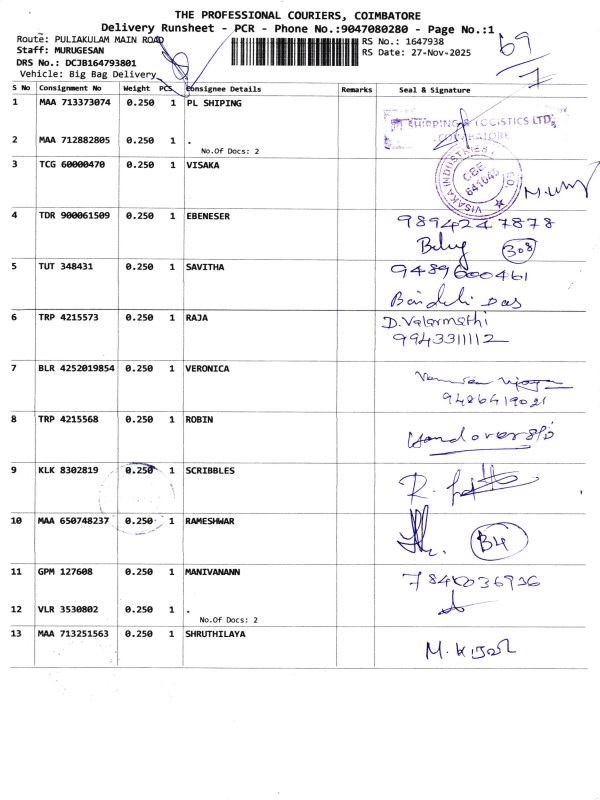 THE PROFESSIONAL COURIERS, COIMBATORE
Delivery Runsheet - PCR - Phone No.:9047080280 - Page No.:1
Route: PULIAKULAM MAIN ROAD
RS No.: 1647938
Staff: MURUGESAN
RS Date: 27-Nov-2025
DRS No.: DCJB164793801
Vehicle: Big Bag Delivery
69/7
S No Consignment No Weight PCS Consignee Details Remarks Seal & Signature
1 MAA 713373074 0.250 1 PL SHIPING
SHIPPING & LOGISTICS LTD.
COIMBATORE
2 MAA 712882805 0.250 1 .
No.Of Docs: 2
3 TCG 60000470 0.250 1 VISAKA
VISAKA INDUSTRIES LTD.
CBE
641045
4 TDR 900061509 0.250 1 EBENESER 9894247878
308
5 TUT 348431 0.250 1 SAVITHA 9489600461
Das
6 TRP 4215573 0.250 1 RAJA D.Valarmathi
9943311112
7 BLR 4252019854 0.250 1 VERONICA
9486419021
8 TRP 4215568 0.250 1 ROBIN Handover
9 KLK 8302819 0.250 1 SCRIBBLES R.
10 MAA 650748237 0.250 1 RAMESHWAR
11 GPM 127608 0.250 1 MANIVANANN 7840036936
12 VLR 3530802 0.250 1 .
No.Of Docs: 2
13 MAA 713251563 0.250 1 SHRUTHILAYA M.